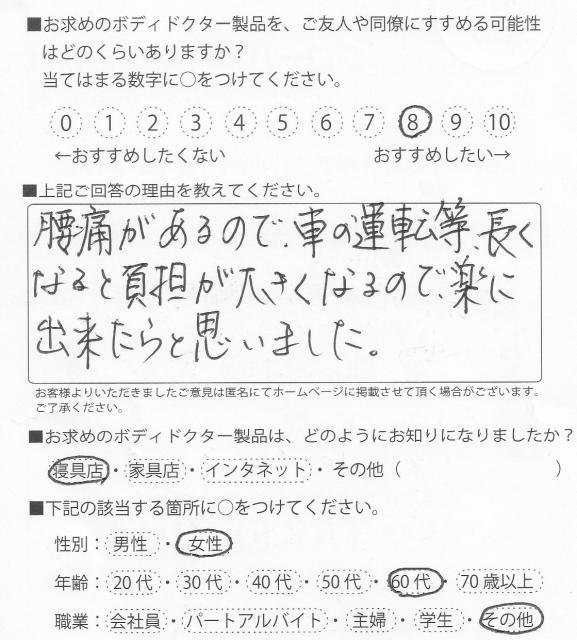 ■お求めのボディドクター製品を、ご友人や同僚にすすめる可能性
はどのくらいありますか？
当てはまる数字に○をつけてください。
0 1 2 3 4 5 6 7 8 9 10
←おすすめしたくない おすすめしたい→
■上記ご回答の理由を教えてください。
腰痛があるので、車の運転等、長く
なると負担が大きくなるので、楽に
出来たらと思いました。
お客様よりいただきましたご意見は匿名にてホームページに掲載させて頂く場合がございます。
ご了承ください。
■お求めのボディドクター製品は、どのようにお知りになりましたか？
寝具店・家具店・インタネット・その他（ ）
■下記の該当する箇所に○をつけてください。
性別：男性・女性
年齢：20代・30代・40代・50代・60代・70歳以上
職業：会社員・パートアルバイト・主婦・学生・その他